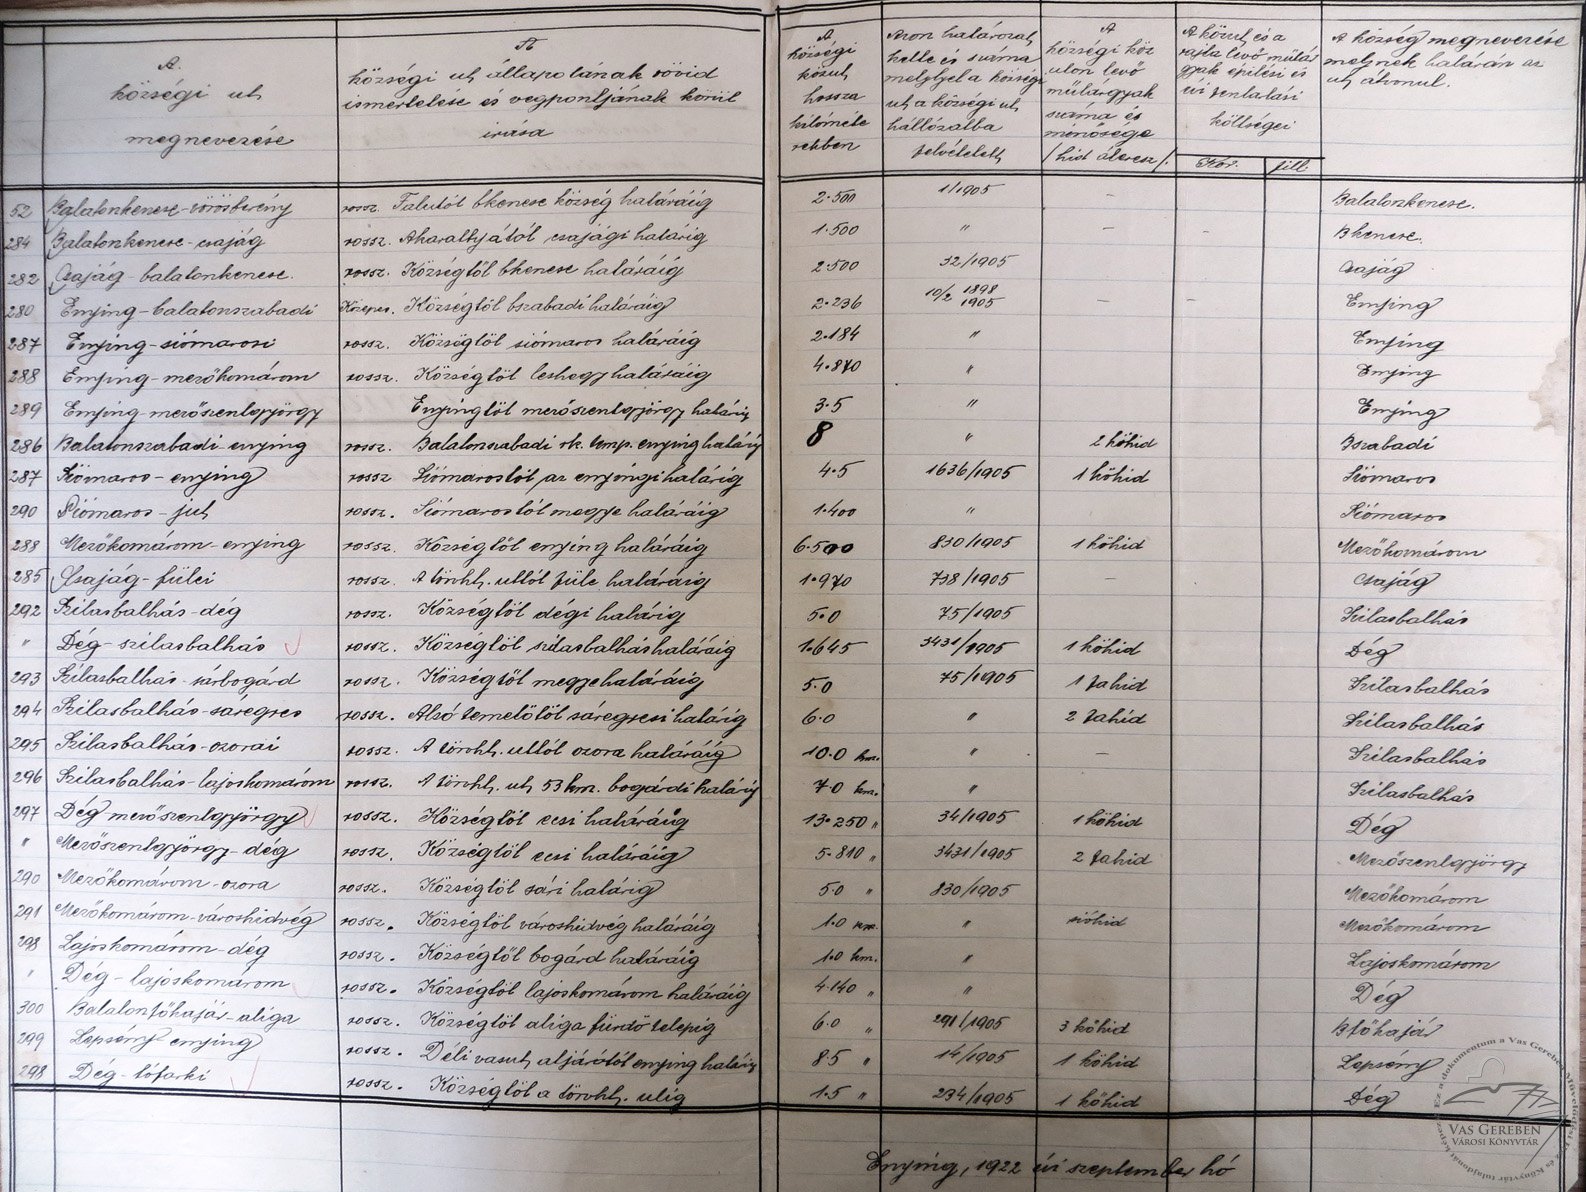 A községi ut megnevezése
A községi ut állapotának rövid ismertetése és végpontjának körülirása
A községi közut hossza kilométerekben
Azon határozat kelte és száma melylyel a községi ut a községi ut hállózatba felvétetett
A községi közuton levő műtárgyak száma és minősége /hid áteresz/.
A közut és a rajta levő műtárgyak épitési és
költségei
Kor. fill
A község megnevezése melynek határán az ut átvonul.
52 Balatonkenese-vörösberény rossz. Falutól bkenese község határáig 2·500 1/1905 - Balatonkenese.
284 Balatonkenese-csajág rossz. Akarattyától csajági határig 1·500 " - - Bkenese.
282 Csajág-balatonkenese. rossz. Községtől bkenese határáig 2·500 32/1905 Csajág
280 Enying-balatonszabadi Közepes. Községtöl bszabadi határáig 2·236 10/2 1898 1905 - - Enying
287 Enying-siómarosi rossz. Községtöl siómaros határáig 2·184 " Enying
288 Enying-mezőkomárom rossz. Községtöl leshegy határáig 4·870 " Enying
289 Enying-mezőszentgyörgy Enyingtöl mezőszentgyörgy határig 3·5 " Enying
286 Balatonszabadi-enying rossz. Balatonszabadi rk. tmp. enying határig 8 " 2 kőhid Bszabadi
287 Siómaros-enying rossz Siómarostól az enyingi határig 4·5 1636/1905 1 kőhid Siómaros
290 Siómaros-jut rossz. Siómarostól megye határáig 1·400 " Siómaros
288 Mezőkomárom-enying rossz. Községtöl enying határáig 6·500 830/1905 1 kőhid Mezőkomárom
285 Csajág-fülei rossz. A törvht. uttól füle határáig 1·970 738/1905 - Csajág
292 Szilasbalhás-dég rossz. Községtöl dégi határig 5·0 75/1905 Szilasbalhás
" Dég-szilasbalhás rossz. Községtöl szilasbalhás határáig 1·645 3431/1905 1 kőhid Dég
293 Szilasbalhás-sárbogárd rossz. Községtöl megye határáig 5·0 75/1905 1 fahid Szilasbalhás
294 Szilasbalhás-sáregres rossz. Alsó temetőtől sáregresi határig 6·0 " 2 fahid Szilasbalhás
295 Szilasbalhás-ozorai rossz. A törvht. uttól ozora határáig 10·0 km. " - Szilasbalhás
296 Szilasbalhás-lajoskomárom rossz. A törvht. ut 53 km. bogárdi határig 7·0 km. " Szilasbalhás
297 Dég mezőszentgyörgy rossz. Községtöl ecsi határáig 13·250 " 34/1905 1 kőhid Dég
" Mezőszentgyörgy-dég rossz. Községtöl ecsi határáig 5·810 " 3431/1905 2 fahid Mezőszentgyörgy
290 Mezőkomárom-ozora rossz. Községtöl sári határig 5·0 " 830/1905 Mezőkomárom
291 Mezőkomárom-városhidvég rossz. Községtöl városhidvég határáig 1·0 km. " sióhid Mezőkomárom
298 Lajoskomárom-dég rossz. Községtől bogárd határáig 1·0 km. " Lajoskomárom
" Dég-lajoskomárom rossz. Községtöl lajoskomárom határáig 4·140 " " Dég
300 Balatonfőkajár-aliga rossz. Községtöl aliga fürdő telepig 6·0 " 291/1905 3 kőhid Bfőkajár
299 Lepsény enying rossz. Déli vasut aljárótól enying határig 8·5 " 14/1905 1 kőhid Lepsény
298 Dég-tófarki rossz. Községtöl a törvht. utig 1·5 " 234/1905 1 kőhid Dég
Enying, 1922 évi szeptember hó
VAS GEREBEN
VÁROSI KÖNYVTÁR